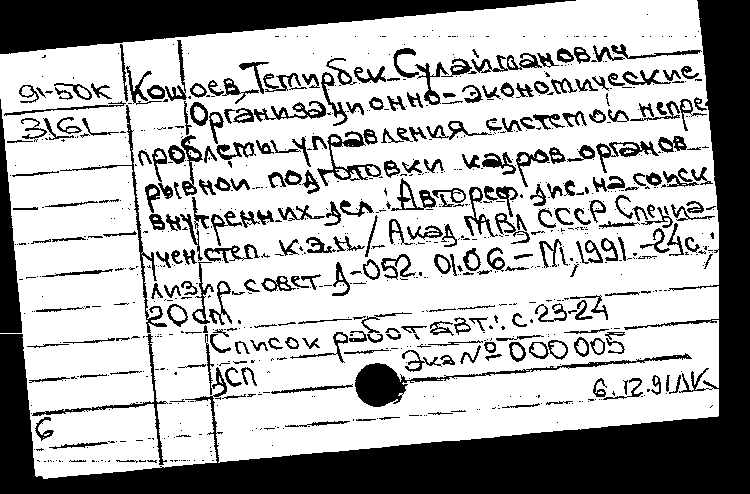 91-50К Кошоев, Темирбек Сулайманович
3161 Организационно-экономические
проблемы управления системой непре-
рывной подготовки кадров органов
внутренних дел: Автореф. дис. на соиск.
учен. степ. к.э.н. / Акад. МВД СССР. Специа-
лизир. совет Д-052.01.06. – М., 1991. – 24с.;
20cm.
Список работ авт.: с. 23-24
ДСП Экз № 000005
6.12.91 ЛК
6